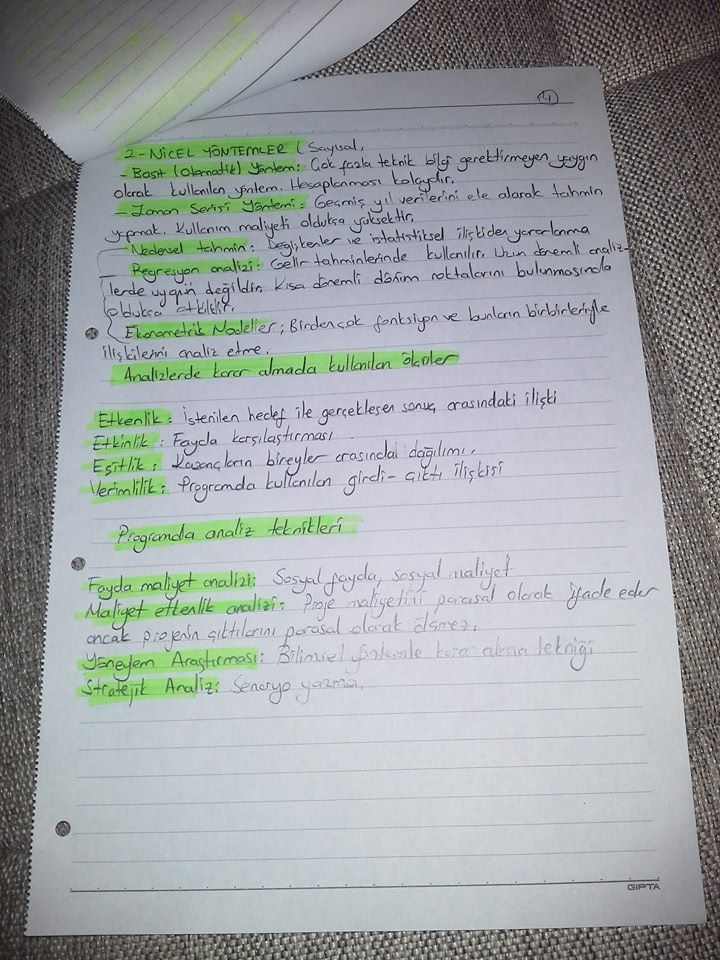 4
2- NİCEL YÖNTEMLER (Sayısal,
- Basit (Otomatik) Yöntem: Çok fazla teknik bilgi gerektirmeyen yaygın
olarak kullanılan yöntem. Hesaplanması kolaydır.
- Zaman Serisi Yöntemi: Geçmiş yıl verilerini ele alarak tahmin
yapmak. Kullanım maliyeti oldukça yüksektir.
- Nedensel tahmin: Değişkenler ve istatistiksel ilişkiden yararlanma
Regresyon analizi: Gelir tahminlerinde kullanılır. Uzun dönemli analiz-
lerde uygun değildir. Kısa dönemli dönüm noktalarını bulunmasında
oldukça etkilidir.
Ekonometrik Modeller; Birden çok fonksiyon ve bunların birbirleriyle
ilişkilerini analiz etme.
Analizlerde karar almada kullanılan ölçüler
Etkenlik: İstenilen hedef ile gerçekleşen sonuç arasındaki ilişki
Etkinlik: Fayda karşılaştırması
Eşitlik: Kazançların bireyler arasındaki dağılımı.
Verimlilik: Programda kullanılan girdi- çıktı ilişkisi
Programda analiz teknikleri
Fayda maliyet analizi: Sosyal fayda, sosyal maliyet
Maliyet etkenlik analizi: Proje maliyetini parasal olarak ifade eder
ancak projenin çıktılarını parasal olarak ölçmez.
Yöneylem Araştırması: Bilimsel yöntemle karar alma tekniği
Stratejik Analiz: Senaryo yazma.
GIPTA